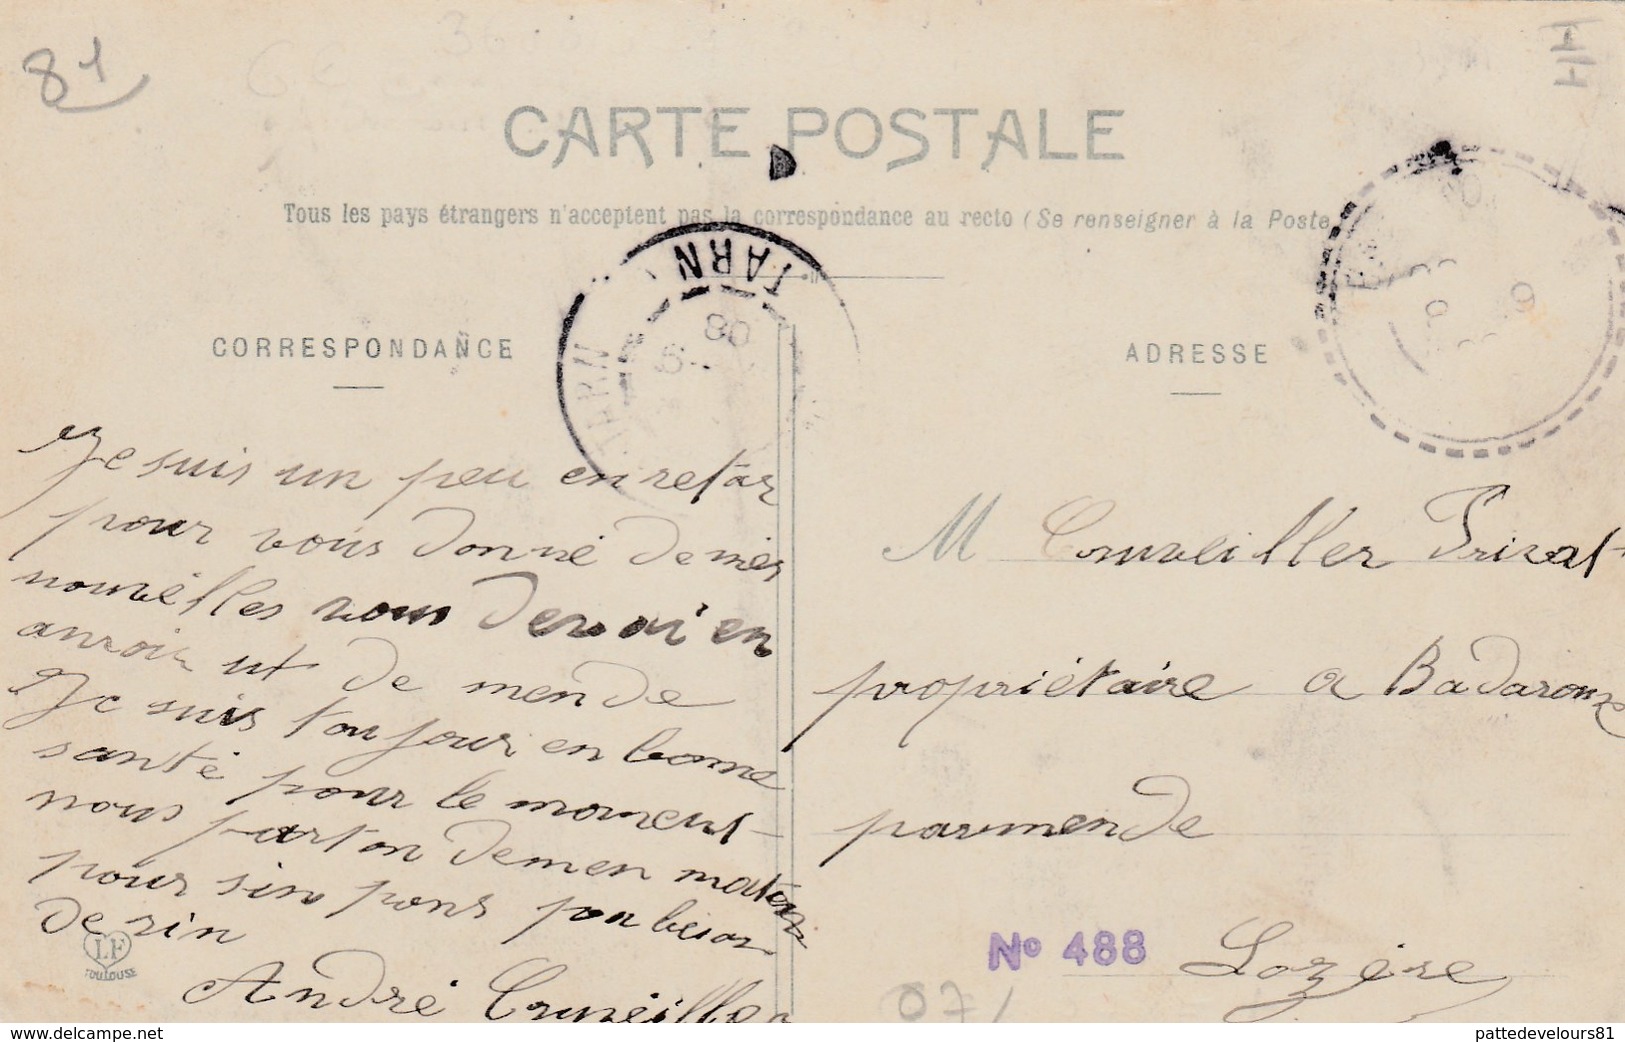 81
CARTE POSTALE
Tous les pays étrangers n'acceptent pas la correspondance au recto (Se renseigner à la Poste
TARN
TARN
08
CORRESPONDANCE
ADRESSE
Je suis un peu en retar
pour vous donné de mes
nouvèlles vous
de mende
Je suis toujour en bonne
santé pour le moment
nous parton demen maten
pour sin pons pa besoin
de rin
André Cruveiller
LF
TOULOUSE
M Cruveiller Privat
propriétaire a Badaroux
par mende
Lozère
No 488
07
pattedevelours81
www.delcampe.net